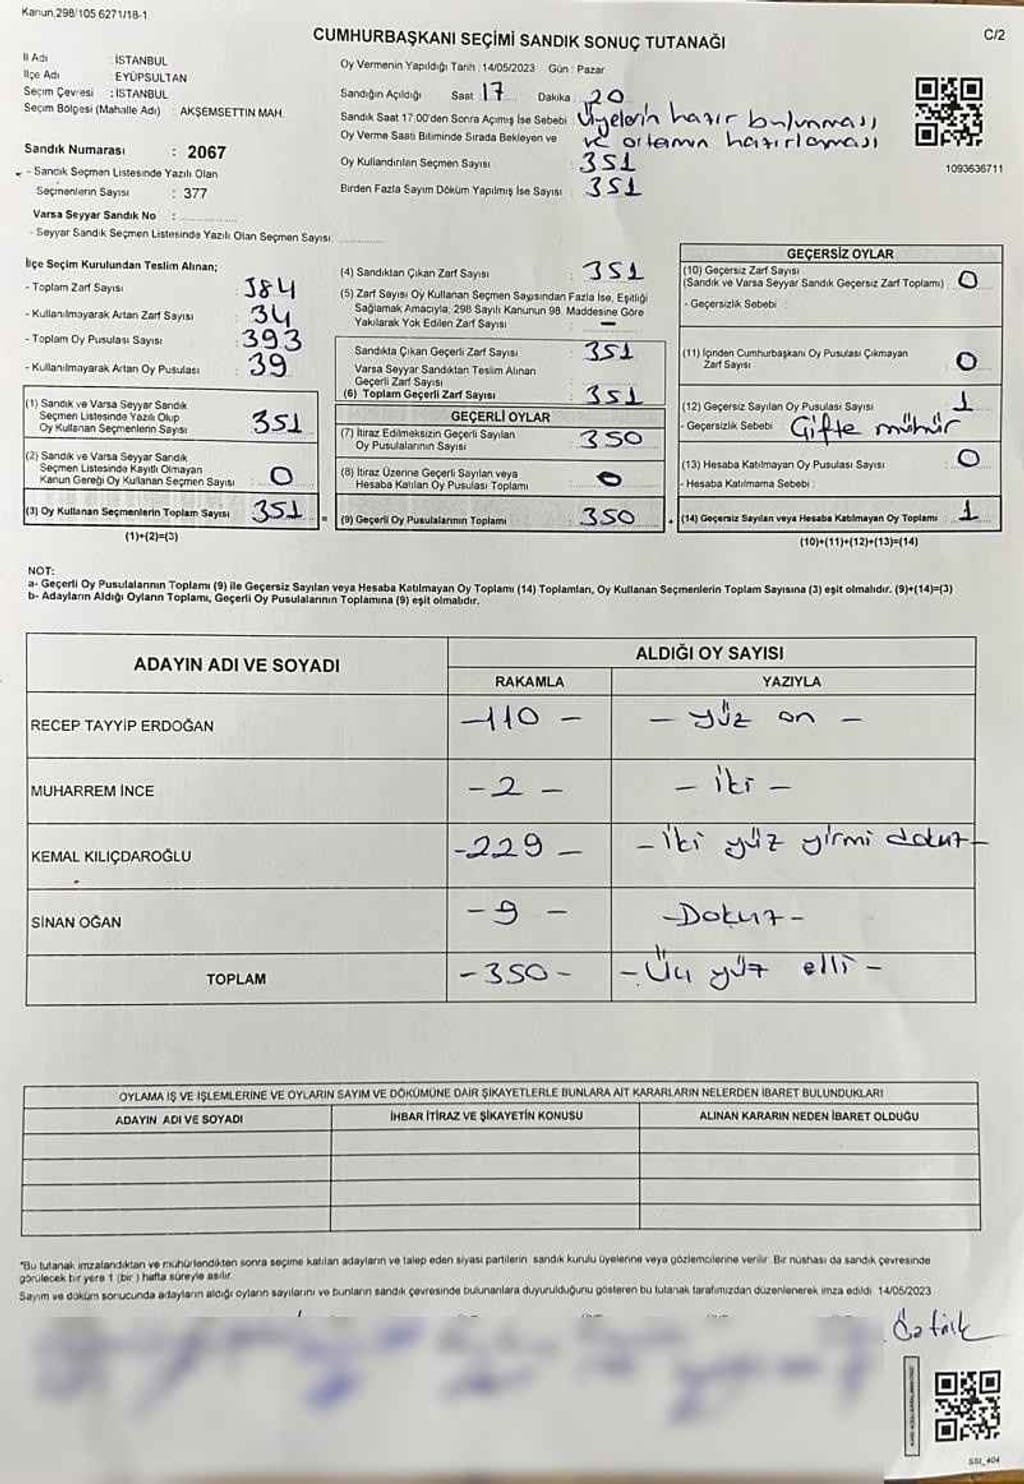 Kanun,298/105 6271/18-1
C/2
CUMHURBAŞKANI SEÇİMİ SANDIK SONUÇ TUTANAĞI
İl Adı : İSTANBUL
İlçe Adı : EYÜPSULTAN
Seçim Çevresi : İSTANBUL
Seçim Bölgesi (Mahalle Adı) : AKŞEMSETTIN MAH.
Sandık Numarası : 2067
- Sandık Seçmen Listesinde Yazılı Olan
Seçmenlerin Sayısı : 377
Varsa Seyyar Sandık No :
- Seyyar Sandık Seçmen Listesinde Yazılı Olan Seçmen Sayısı:
Oy Vermenin Yapıldığı Tarih : 14/05/2023 Gün : Pazar
Sandığın Açıldığı Saat 17 Dakika : 20
Sandık Saat 17:00'den Sonra Açımış İse Sebebi : Üyelerin hazır bulunması
Oy Verme Saati Bitiminde Sırada Bekleyen ve
ve ortamın hazırlaması
Oy Kullandırılan Seçmen Sayısı : 351
Birden Fazla Sayım Döküm Yapılmış İse Sayısı : 351
1093636711
İlçe Seçim Kurulundan Teslim Alınan;
- Toplam Zarf Sayısı : 384
- Kullanılmayarak Artan Zarf Sayısı : 34
- Toplam Oy Pusulası Sayısı : 393
- Kullanılmayarak Artan Oy Pusulası : 39
(1) Sandık ve Varsa Seyyar Sandık
Seçmen Listesinde Yazılı Olup
Oy Kullanan Seçmenlerin Sayısı : 351
(2) Sandık ve Varsa Seyyar Sandık
Seçmen Listesinde Kayıtlı Olmayan
Kanun Gereği Oy Kullanan Seçmen Sayısı : 0
(3) Oy Kullanan Seçmenlerin Toplam Sayısı : 351
(1)+(2)=(3)
(4) Sandıktan Çıkan Zarf Sayısı : 351
(5) Zarf Sayısı Oy Kullanan Seçmen Sayısından Fazla İse, Eşitliği
Sağlamak Amacıyla, 298 Sayılı Kanunun 98. Maddesine Göre
Yakılarak Yok Edilen Zarf Sayısı : —
Sandıkta Çıkan Geçerli Zarf Sayısı : 351
Varsa Seyyar Sandıktan Teslim Alınan
Geçerli Zarf Sayısı :
(6) Toplam Geçerli Zarf Sayısı : 351
GEÇERLİ OYLAR
(7) İtiraz Edilmeksizin Geçerli Sayılan
Oy Pusulalarının Sayısı : 350
(8) İtiraz Üzerine Geçerli Sayılan veya
Hesaba Katılan Oy Pusulası Toplamı : 0
(9) Geçerli Oy Pusulalarının Toplamı : 350
GEÇERSİZ OYLAR
(10) Geçersiz Zarf Sayısı
(Sandık ve Varsa Seyyar Sandık Geçersiz Zarf Toplamı) : 0
- Geçersizlik Sebebi :
(11) İçinden Cumhurbaşkanı Oy Pusulası Çıkmayan
Zarf Sayısı : 0
(12) Geçersiz Sayılan Oy Pusulası Sayısı : 1
- Geçersizlik Sebebi : Çifte mühür
(13) Hesaba Katılmayan Oy Pusulası Sayısı : 0
- Hesaba Katılmama Sebebi :
(14) Geçersiz Sayılan veya Hesaba Katılmayan Oy Toplamı : 1
(10)+(11)+(12)+(13)=(14)
NOT:
a- Geçerli Oy Pusulalarının Toplamı (9) ile Geçersiz Sayılan veya Hesaba Katılmayan Oy Toplamı (14) Toplamları, Oy Kullanan Seçmenlerin Toplam Sayısına (3) eşit olmalıdır. (9)+(14)=(3)
b- Adayların Aldığı Oyların Toplamı, Geçerli Oy Pusulalarının Toplamına (9) eşit olmalıdır.
ADAYIN ADI VE SOYADI ALDIĞI OY SAYISI
RAKAMLA YAZIYLA
RECEP TAYYİP ERDOĞAN -110 - - yüz on -
MUHARREM İNCE -2 - - iki -
KEMAL KILIÇDAROĞLU -229 - - iki yüz yirmi dokuz -
SİNAN OĞAN -9 - -Dokuz-
TOPLAM -350- - Üç yüz elli -
OYLAMA İŞ VE İŞLEMLERİNE VE OYLARIN SAYIM VE DÖKÜMÜNE DAİR ŞİKAYETLERLE BUNLARA AİT KARARLARIN NELERDEN İBARET BULUNDUKLARI
ADAYIN ADI VE SOYADI İHBAR İTİRAZ VE ŞİKAYETİN KONUSU ALINAN KARARIN NEDEN İBARET OLDUĞU
*Bu tutanak imzalandıktan ve mühürlendikten sonra seçime katılan adayların ve talep eden siyasi partilerin sandık kurulu üyelerine veya gözlemcilerine verilir. Bir nüshası da sandık çevresinde
görülecek bir yere 1 (bir ) hafta süreyle asılır.
Sayım ve döküm sonucunda adayların aldığı oyların sayılarını ve bunların sandık çevresinde bulunanlara duyurulduğunu gösteren bu tutanak tarafımızdan düzenlenerek imza edildi. 14/05/2023
SSI_404